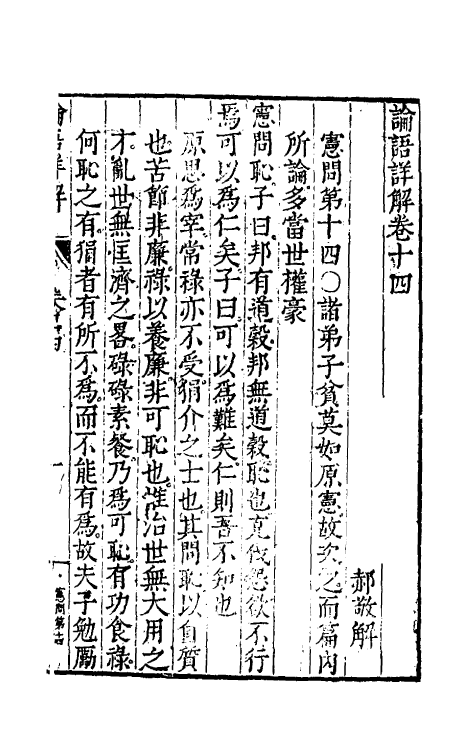 論語詳解卷十四
郝敬解
憲問第十四○諸弟子貧莫如原憲故次之而篇內
所論多當世權豪
憲問恥子曰邦有道穀邦無道穀恥也克伐怨欲不行
焉可以為仁矣子曰可以為難矣仁則吾不知也
原思為宰常祿亦不受狷介之士也其問恥以自質
也苦節非廉祿以養廉非可恥也惟治世無大用之
才亂世無匡濟之畧碌碌素餐乃為可恥有功食祿
何恥之有狷者有所不為而不能有為故夫子勉勵
論語詳解
憲問第十四